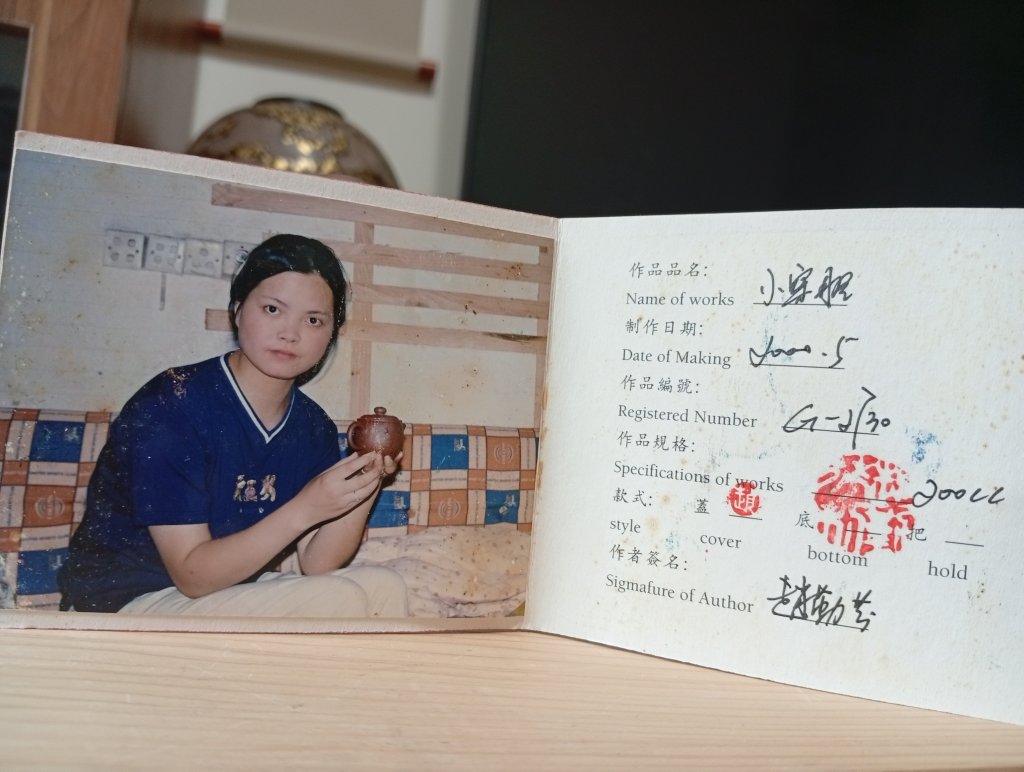 作品品名:
Name of works 小宗肥
制作日期:
Date of Making 2000.5
作品編號:
Registered Number
作品規格:
Specifications of works 200cc
款式: 蓋 底 把
style cover bottom hold
作者簽名:
Sigmafure of Author 趙勤芬